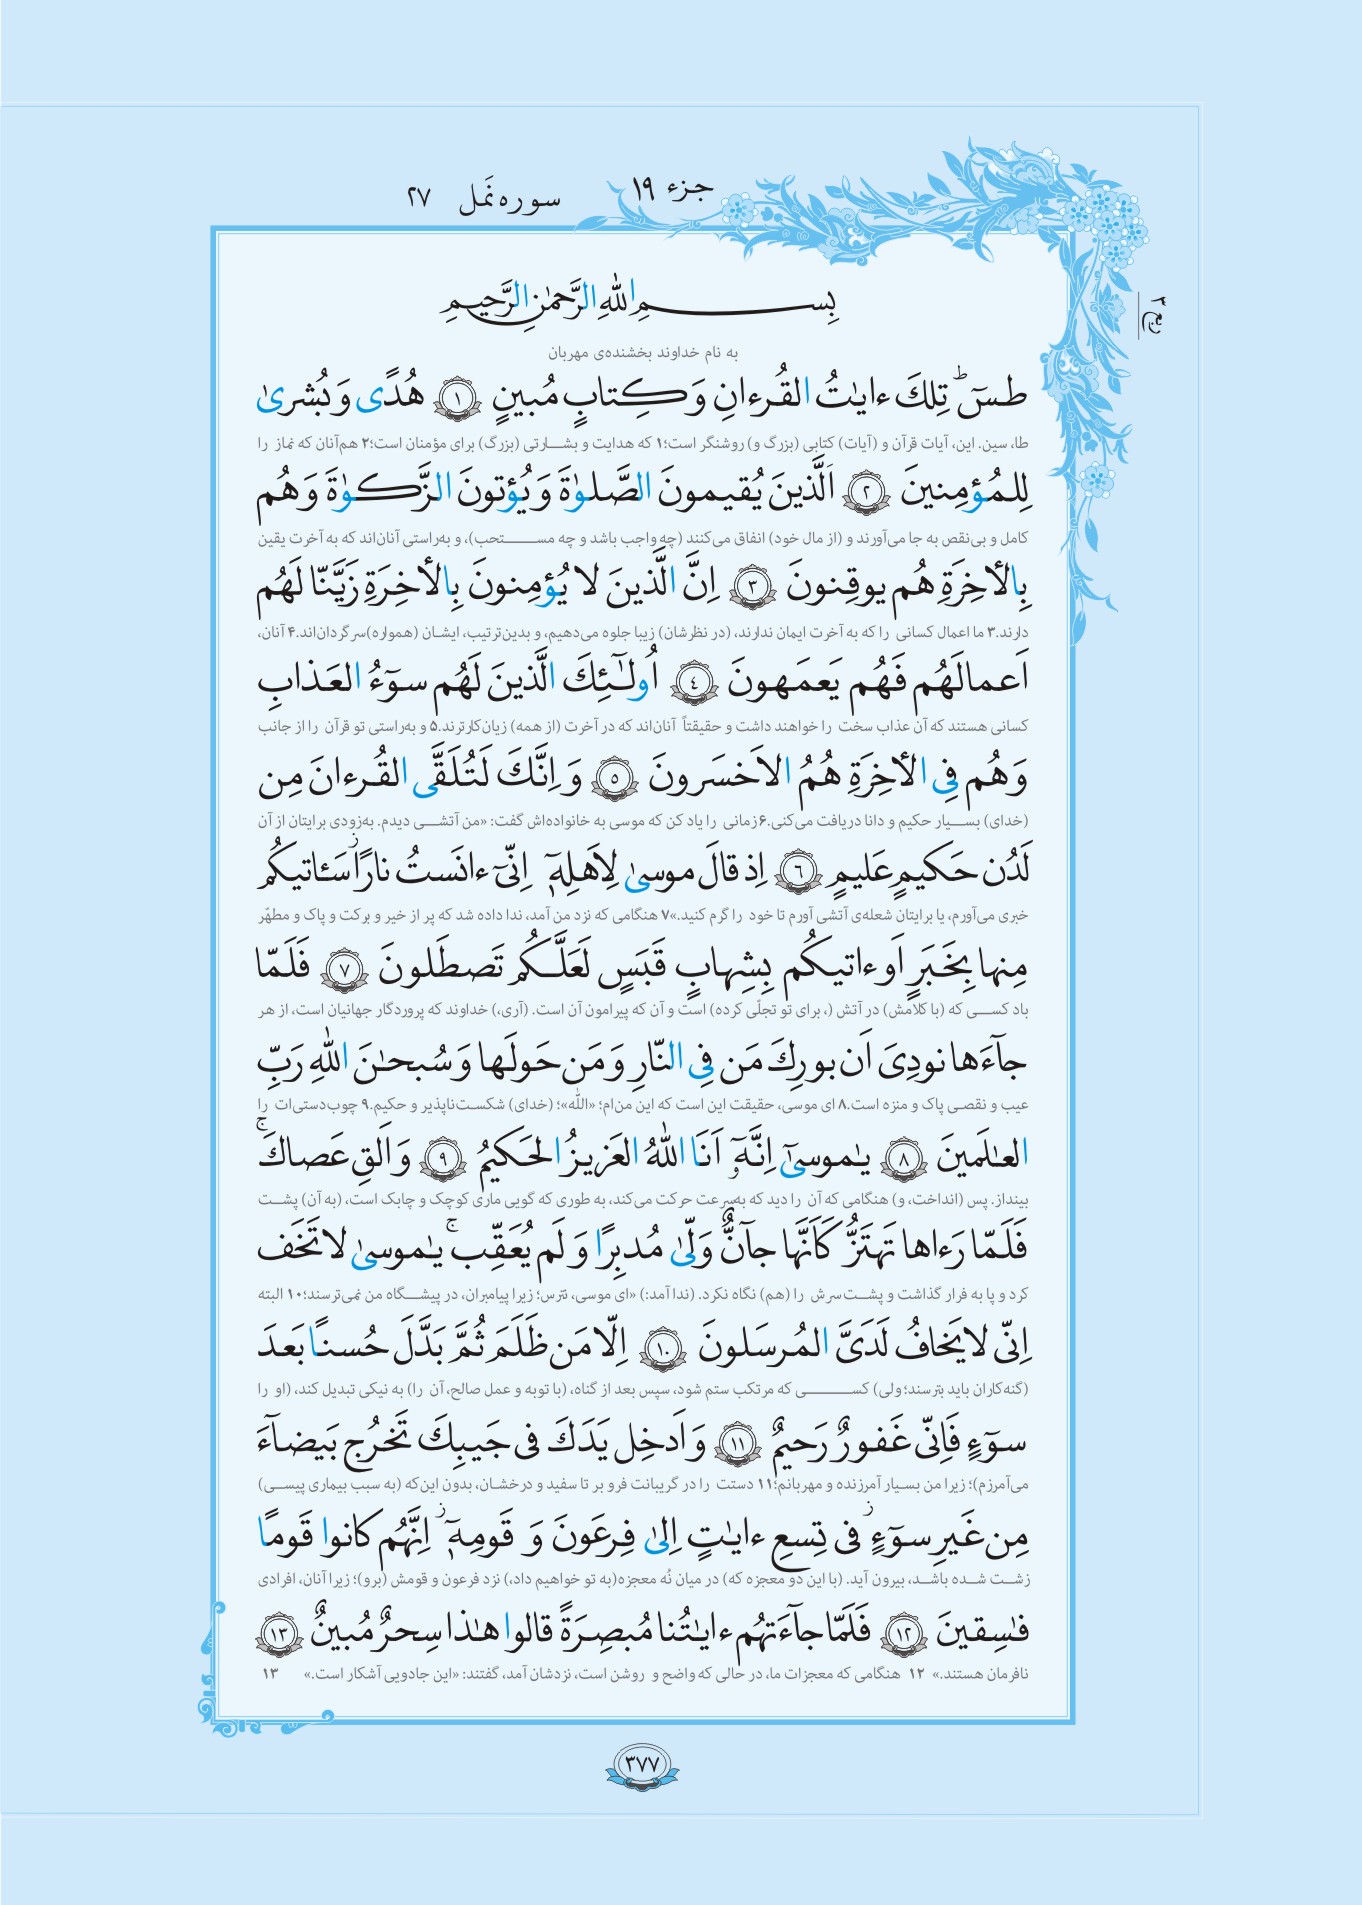 جزء ۱۹
سوره نَمل ۲۷
ربع ۳
بِسمِ اللهِ الرَّحمٰنِ الرَّحیمِ
به نام خداوند بخشنده‌ی مهربان
طسٓ ۚ تِلكَ ءایٰتُ القُرءانِ وَ كِتابٍ مُبینٍ ﴿۱﴾ هُدًی وَ بُشریٰ
طا، سین. این، آیات قرآن و (آیات) کتابی (بزرگ و) روشنگر است؛۱ که هدایت و بشارتی (بزرگ) برای مؤمنان است؛۲ هم‌آنان که نماز را
لِلمُؤمِنینَ ﴿۲﴾ اَلَّذینَ یُقیمونَ الصَّلوٰةَ وَ یُؤتونَ الزَّكوٰةَ وَ هُم
کامل و بی‌نقص به جا می‌آورند و (از مال خود) انفاق می‌کنند (چه واجب باشد و چه مستحب)، و به‌راستی آنان‌اند که به آخرت یقین
بِالأخِرَةِ هُم یوقِنونَ ﴿۳﴾ اِنَّ الَّذینَ لا یُؤمِنونَ بِالأخِرَةِ زَیَّنّا لَهُم
دارند.۳ ما اعمال کسانی را که به آخرت ایمان ندارند، (در نظرشان) زیبا جلوه می‌دهیم، و بدین‌ترتیب، ایشان (همواره)سرگردان‌اند.۴ آنان،
اَعمالَهُم فَهُم یَعمَهونَ ﴿٤﴾ اُولٰٓئِكَ الَّذینَ لَهُم سوٓءُ العَذابِ
کسانی هستند که آن عذاب سخت را خواهند داشت و حقیقتاً آنان‌اند که در آخرت (از همه) زیان‌کارترند.۵ و به‌راستی تو قرآن را از جانب
وَ هُم فِی الأخِرَةِ هُمُ الاَخسَرونَ ﴿۵﴾ وَ اِنَّكَ لَتُلَقَّی القُرءانَ مِن
(خدای) بسیار حکیم و دانا دریافت می‌کنی.۶ زمانی را یاد کن که موسی به خانواده‌اش گفت: «من آتشی دیدم. به‌زودی برایتان از آن
لَدُن حَكیمٍ عَلیمٍ ﴿٦﴾ اِذ قالَ موسیٰ لِاَهلِهٖٓ اِنّیٓ ءانَستُ نارًا ۖ سَـٔاتیكُم
خبری می‌آورم، یا برایتان شعله‌ی آتشی آورم تا خود را گرم کنید.»۷ هنگامی که نزد من آمد، ندا داده شد که پر از خیر و برکت و پاک و مطهّر
مِنها بِخَبَرٍ اَو ءاتیكُم بِشِهابٍ قَبَسٍ لَعَلَّكُم تَصطَلونَ ﴿۷﴾ فَلَمّا
باد کسی که (با کلامش) در آتش (، برای تو تجلّی کرده) است و آن که پیرامون آن است. (آری،) خداوند که پروردگار جهانیان است، از هر
جآءَها نودِیَ اَن بورِكَ مَن فِی النّارِ وَ مَن حَولَها وَ سُبحٰنَ اللهِ رَبِّ
عیب و نقصی پاک و منزه است.۸ ای موسی، حقیقت این است که این من‌ام؛ «الله»؛ (خدای) شکست‌ناپذیر و حکیم.۹ چوب‌دستی‌ات را
العٰلَمینَ ﴿۸﴾ یٰموسیٰٓ اِنَّهٗٓ اَنَا اللهُ العَزیزُ الحَكیمُ ﴿۹﴾ وَ اَلقِ عَصاكَ ۚ
بینداز. پس (انداخت، و) هنگامی که آن را دید که به‌سرعت حرکت می‌کند، به طوری که گویی ماری کوچک و چابک است، (به آن) پشت
فَلَمّا رَءاها تَهتَزُّ كَاَنَّها جآنٌّ وَلّیٰ مُدبِرًا وَ لَم یُعَقِّب ۚ یٰموسیٰ لا تَخَف
کرد و پا به فرار گذاشت و پشت‌سرش را (هم) نگاه نکرد. (ندا آمد:) «ای موسی، نترس؛ زیرا پیامبران، در پیشگاه من نمی‌ترسند؛۱۰ البته
اِنّی لا یَخافُ لَدَیَّ المُرسَلونَ ﴿۱۰﴾ اِلّا مَن ظَلَمَ ثُمَّ بَدَّلَ حُسنًا بَعدَ
(گنه‌کاران باید بترسند؛ ولی) کسی که مرتکب ستم شود، سپس بعد از گناه، (با توبه و عمل صالح، آن را) به نیکی تبدیل کند، (او را
سوٓءٍ فَاِنّی غَفورٌ رَحیمٌ ﴿۱۱﴾ وَ اَدخِل یَدَكَ فی جَیبِكَ تَخرُج بَیضآءَ
می‌آمرزم)؛ زیرا من بسیار آمرزنده و مهربانم؛۱۱ دستت را در گریبانت فرو بر تا سفید و درخشان، بدون این‌که (به سبب بیماری پیسی)
مِن غَیرِ سوٓءٍ ۖ فی تِسعِ ءایٰتٍ اِلیٰ فِرعَونَ وَ قَومِهٖٓ ۖ اِنَّهُم كانوا قَومًا
زشت شده باشد، بیرون آید. (با این دو معجزه که) در میان نُه معجزه(به تو خواهیم داد،) نزد فرعون و قومش (برو)؛ زیرا آنان، افرادی
فٰسِقینَ ﴿۱۲﴾ فَلَمّا جآءَتهُم ءایٰتُنا مُبصِرَةً قالوا هٰذا سِحرٌ مُبینٌ ﴿۱۳﴾
نافرمان هستند.» ۱۲ هنگامی که معجزات ما، در حالی که واضح و روشن است، نزدشان آمد، گفتند: «این جادویی آشکار است.» ۱۳
۳۷۷